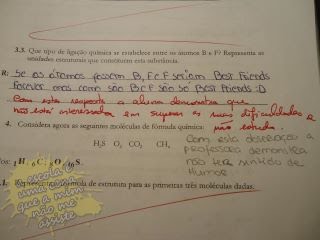 3.3. Que tipo de ligação química se estabelece entre os átomos B e F? Representa as
unidades estruturais que constituem esta substância.
R: Se os átomos fossem B, F e F seriam Best Friends
Forever mas como são B e F são só Best Friends :D
Com esta resposta a aluna demonstra que
não está interessada em superar as suas dificuldades e
não estuda.
4. Considera agora as seguintes moléculas de fórmula química:
H₂S O₂ CO₂ CH₄
Com esta observação a
professora demonstra
não ter sentido de
humor
1H 6C 8O 16S
Representa a fórmula de estrutura para as primeiras três moléculas dadas.
a escola é
uma vida
que a mim
não me
assiste